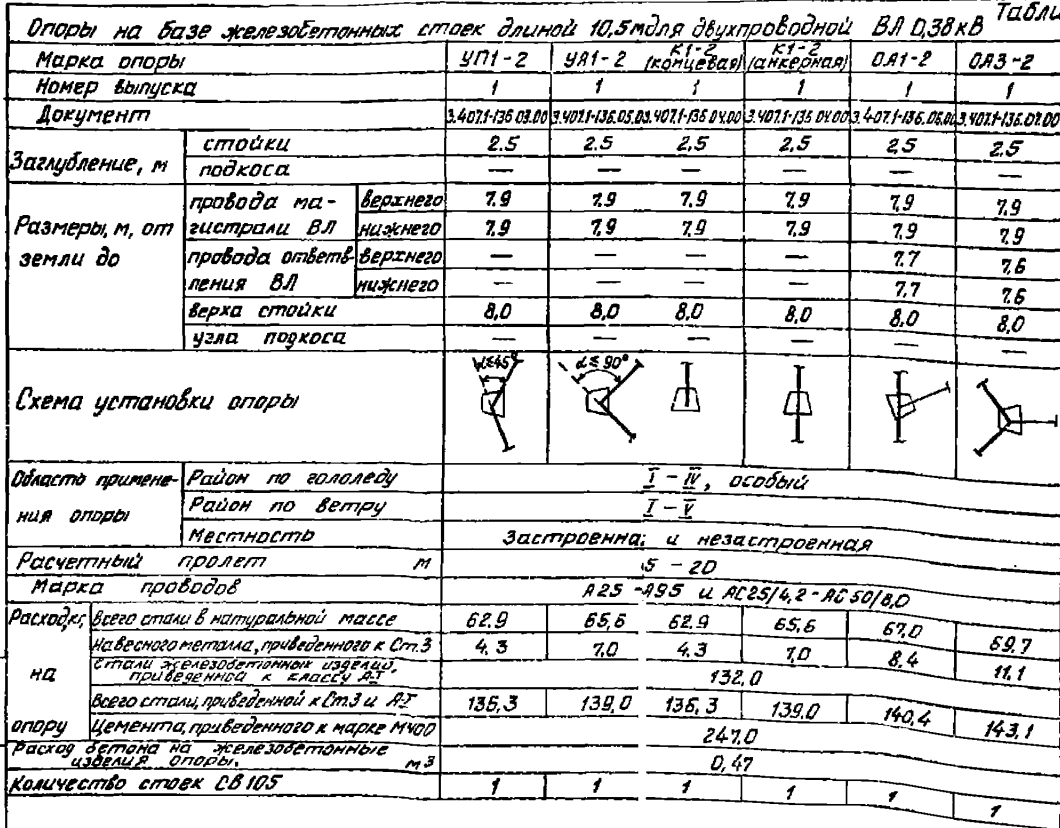 Табли
Опоры на базе железобетонных стоек длиной 10,5м для двухпроводной ВЛ 0,38кВ
Марка опоры УП1-2 УА1-2 К1-2 (концевая) К1-2 (анкерная) ОА1-2 ОА3-2
Номер выпуска 1 1 1 1 1 1
Документ 3.407.1-136.03.00 3.407.1-136.05.00 3.407.1-136.04.00 3.407.1-136.04.00 3.407.1-136.06.00 3.407.1-136.07.00
Заглубление, м стойки 2.5 2.5 2.5 2,5 2,5 2,5
подкоса — — — — — —
Размеры, м, от земли до
провода магистрали ВЛ верхнего 7.9 7.9 7.9 7.9 7,9 7,9
нижнего 7.9 7.9 7.9 7.9 7.9 7.9
провода ответвления ВЛ верхнего — — — — 7.7 7.6
нижнего — — — — 7.7 7.6
верха стойки 8,0 8,0 8,0 8,0 8,0 8,0
узла подкоса — — — — — —
Схема установки опоры α≤45° α≤90°
Область применения опоры
Район по гололеду I - IV, особый
Район по ветру I - V
Местность Застроенна; и незастроенная
Расчетный пролет м 5 - 20
Марка проводов А25 -А95 и АС25/4,2 - АС 50/8,0
Расход, кг, на опору
Всего стали в натуральной массе 62.9 65,6 62.9 65,6 67,0 69.7
Навесного металла, приведенного к Ст.3 4.3 7.0 4.3 7,0 8,4 11.1
Стали железобетонных изделий, приведенной к классу А-I 132,0
Всего стали, приведенной к Ст.3 и А-I 136,3 139,0 136,3 139,0 140,4 143,1
Цемента, приведенного к марке М400 247.0
Расход бетона на железобетонные изделия опоры, м3 0,47
Количество стоек СВ 105 1 1 1 1 1 1